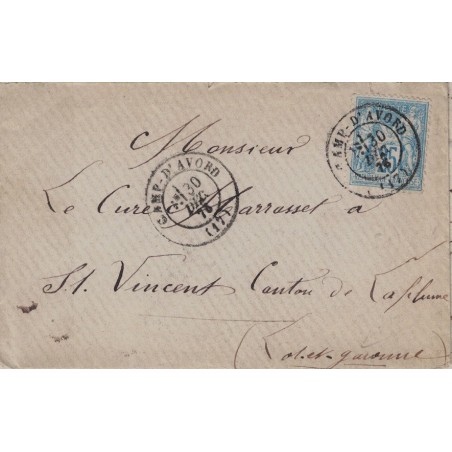 CAMP-D'AVORD
30
DEC.
76
(17)
25
CAMP-D'AVORD
30
DEC.
76
(17)
Monsieur
Le Curé Marrasset a
St. Vincent Canton de Laplume
(Lot-et-garonne)